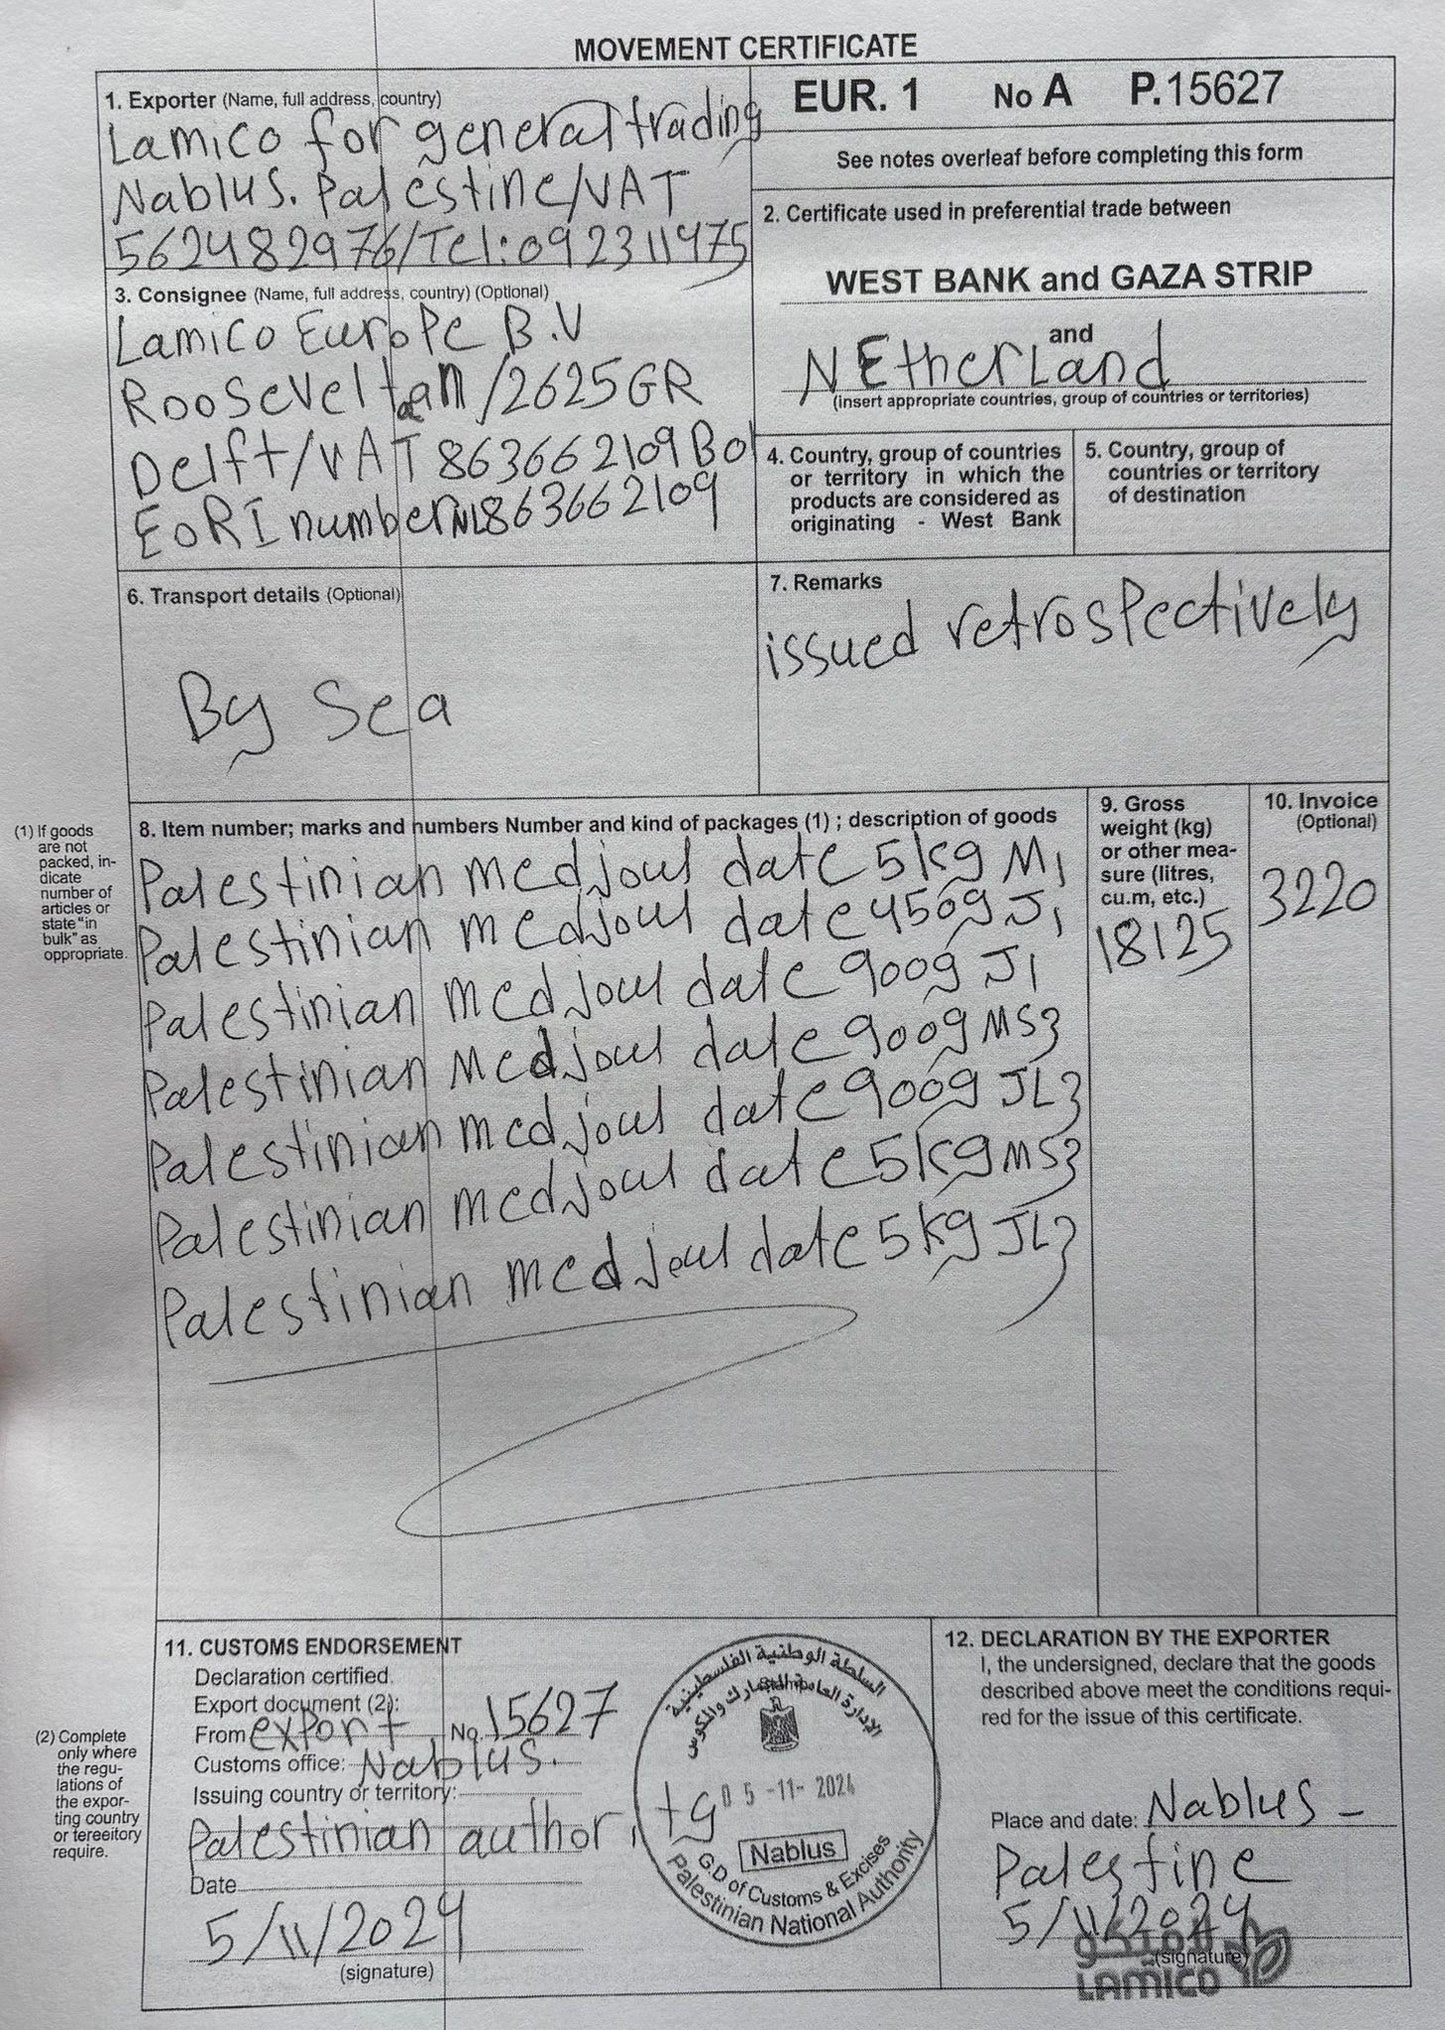 MOVEMENT CERTIFICATE
1. Exporter (Name, full address, country)
Lamico for general trading
Nablus. Palestine/VAT
562482976/Tel:092311475
EUR. 1 No A P.15627
See notes overleaf before completing this form
2. Certificate used in preferential trade between
WEST BANK and GAZA STRIP
and
NEtherLand
(insert appropriate countries, group of countries or territories)
3. Consignee (Name, full address, country) (Optional)
Lamico Europe B.V
Rooseveltlaan/2625GR
Delft/VAT 863662109B01
EORI number NL863662109
4. Country, group of countries
or territory in which the
products are considered as
originating - West Bank
5. Country, group of
countries or territory
of destination
6. Transport details (Optional)
By Sea
7. Remarks
issued retrospectively
(1) If goods
are not
packed, in-
dicate
number of
articles or
state "in
bulk" as
oppropriate.
8. Item number; marks and numbers Number and kind of packages (1) ; description of goods
Palestinian medjoul date 5kg M1
Palestinian medjoul date 450g J1
Palestinian medjoul date 900g J1
Palestinian Medjoul date 900g MS3
Palestinian medjoul date 900g JL3
Palestinian medjoul date 5kg MS3
Palestinian medjoul date 5kg JL3
9. Gross
weight (kg)
or other mea-
sure (litres,
cu.m, etc.)
18125
10. Invoice
(Optional)
3220
(2) Complete
only where
the regu-
lations of
the expor-
ting country
or tereeitory
require.
11. CUSTOMS ENDORSEMENT
Declaration certified.
Export document (2):
From export No. 15627
Customs office: Nablus.
Issuing country or territory:
Palestinian authority
Date
5/11/2024
(signature)
السلطة الوطنية الفلسطينية
الإدارة العامة للجمارك والمكوس
05-11-2024
Nablus
G.D of Customs & Excises
Palestinian National Authority
12. DECLARATION BY THE EXPORTER
I, the undersigned, declare that the goods
described above meet the conditions requi-
red for the issue of this certificate.
Place and date: Nablus -
Palestine
5/11/2024
(signature)
لاميكو
LAMICO